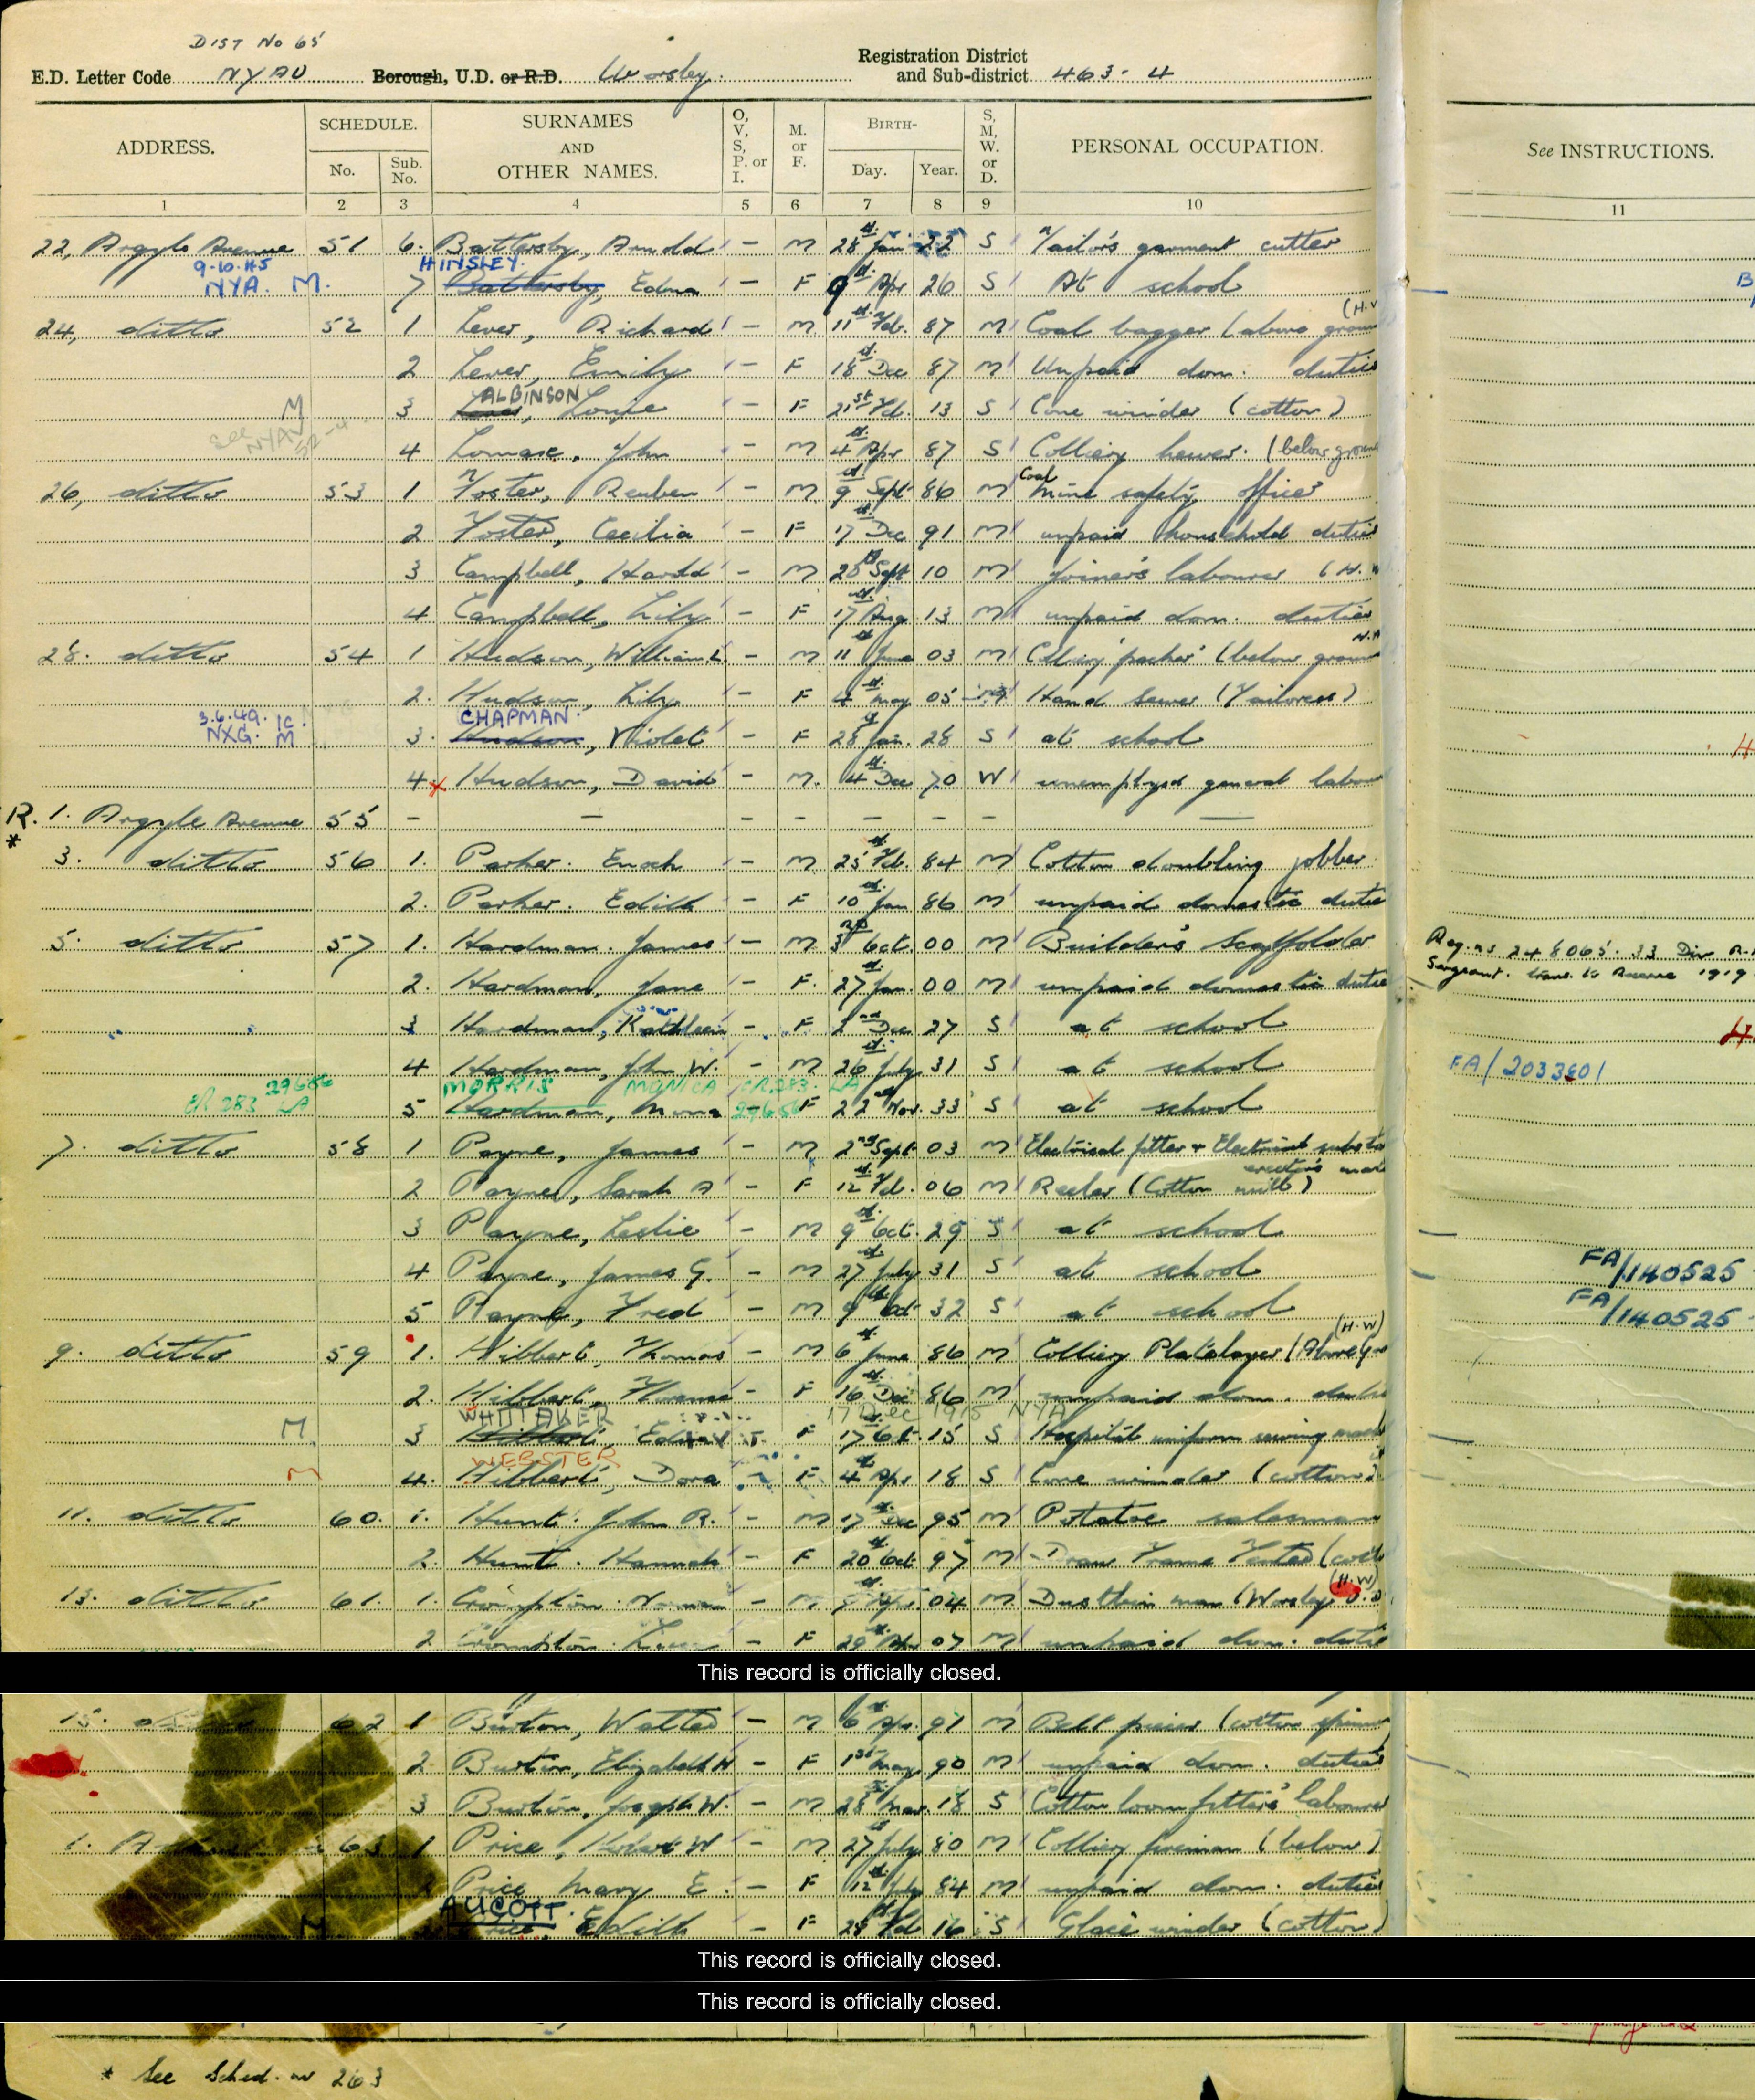 DIST No 65
E.D. Letter Code NYAU Borough, U.D. or R.D. Worsley. Registration District and Sub-district 463-4
ADDRESS. SCHEDULE. No. Sub. No. SURNAMES AND OTHER NAMES. O, V, S, P. or I. M. or F. BIRTH- Day. Year. S, M, W. or D. PERSONAL OCCUPATION. See INSTRUCTIONS.
1 2 3 4 5 6 7 8 9 10 11
22, Argyle Avenue 51 6. Battersby, Arnold - M 28th Jan 22 S Tailor's garment cutter
9.10.45 HINSLEY.
NYA. M. 7 Battersby, Edna - F 9th Apr 26 S At school
24, ditto 52 1 Lever, Richard - M 11th Feb. 87 M Coal bagger (above groun (H.W
2 Lever, Emily - F 18th Dec 87 M Unpaid dom. duties
ALBINSON
M 3 Lever, Louie - F 21st Feb. 13 S Cone winder (cotton)
see NYAV 52-4
4 Lomax, John - M 4th Apr 87 S Colliery hewer. (below groun
26, ditto 53 1 Foster, Reuben - M 9th Sept 86 M Coal mine safety officer
2 Foster, Cecilia - F 17th Dec 91 M unpaid household duties
3 Campbell, Harold - M 20th Sept 10 M Joiner's labourer (H.W
4 Campbell, Lily - F 17th Aug 13 M unpaid dom. duties
28. ditto 54 1 Hudson, William L. - M 11th June 03 M Colliery packer (below groun
2. Hudson, Lily - F 4th May 05 M Hand Sewer (Tailoress)
3.6.49. 1C. CHAPMAN.
NXG. M 3. Hudson, Violet - F 28th Jan. 28 S at school
4 x Hudson, David - M. 4th Dec 70 W unemployed general labou
R. 1. Argyle Avenue 55 - - - - - - - -
*
3. ditto 56 1. Parker. Enoch - M 25th Feb. 84 M Cotton doubling jobber
2. Parker. Edith - F 10th Jan 86 M unpaid domestic dutie
5. ditto 57 1. Hardman. James - M 3rd Oct. 00 M Builder's Scaffolder Reg. no 248065. 33 Div R.
Sergeant. trans. to Reserve 1919
2. Hardman, Jane - F. 27th Jan. 00 M unpaid domestic dutie
3 Hardman, Kathleen - F 2nd Dec 27 S at school
4 Hardman, John W. - M 26th July 31 S at school FA/2033801
29686 MORRIS MONICA CR.283. LA
CR 283 LA 5 Hardman, Mona 29686 F 22nd Nov. 33 S at school
7. ditto 58 1 Payne, James - M 2nd Sept 03 M Electrical fitter + Electrical substa
erector's mate
2 Payne, Sarah A - F 12th Feb. 06 M Reeler (Cotton mill)
3 Payne, Leslie - M 9th Oct. 29 S at school
4 Payne, James G. - M 27th July 31 S at school FA/140525
5 Payne, Fred - M 9th Oct 32 S at school FA/140525
9. ditto 59 1. Hibbert, Thomas - M 6th June 86 M Colliery Platelayer (Above G (H.W)
2. Hibbert, Florence - F 16th Dec 86 M unpaid dom. dutie
WHITTAKER 17 Dec 1915 NYA
M. 3 Hibbert, Edna F 17th Oct. 15 S Hospital uniform sewing mach
WEBSTER
M 4. Hibbert, Dora - F 4th Apr 18 S Cone winder (cotton)
11. ditto 60. 1. Hunt. John R. - M 17th Dec 95 M Potatoe salesman
2. Hunt. Hannah - F 20th Oct 97 M Draw Frame Tenter (cott
13. ditto 61. 1. Crompton. Norman - M Apr. 04 M Dustbin man (Worsley U.D (H.W)
2 Crompton. - F 29th Apr 07 M unpaid dom. dutie
This record is officially closed.
15. ditto 62 1 Burton, Walter - M 6th Apr. 91 M Belt piecer (cotton spinn
2 Burton, Elizabeth H - F 1st May 90 M unpaid dom. duties
3 Burton, Joseph W. - M 28th Mar. 18 S Cotton loom fitter's labourer
1. 63 1 Price, Herbert W - M 27th July 80 M Colliery fireman (below)
2 Price Mary E. - F 12th July 84 M unpaid dom. duties
AUCOTT.
M Price, Edith - F 28th Feb 16 S Glace winder (cotton)
This record is officially closed.
This record is officially closed.
* See Sched. no 263